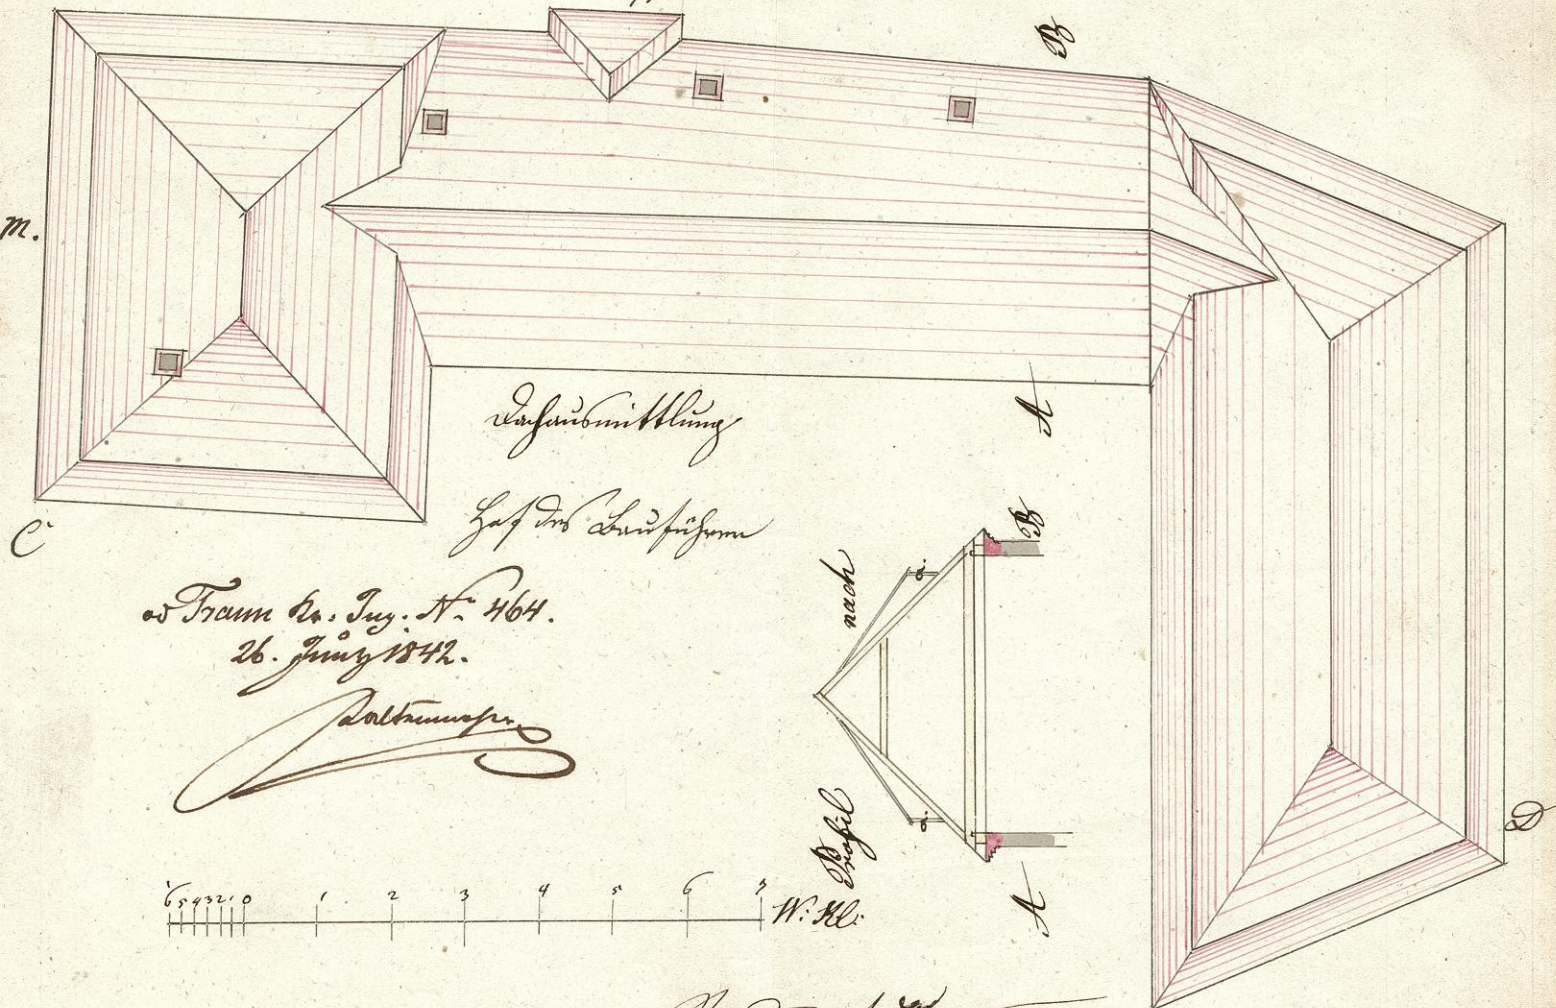 B
M.
Dachausmittlung
A
C
des Bauführers
ad Traun Kr: Ing. Nr 464.
26. Juny 1842.
nach
B
a.
a.
Profil
A
D
6 5 4 3 2 1 0 1 2 3 4 5 6 7 W: Kl: